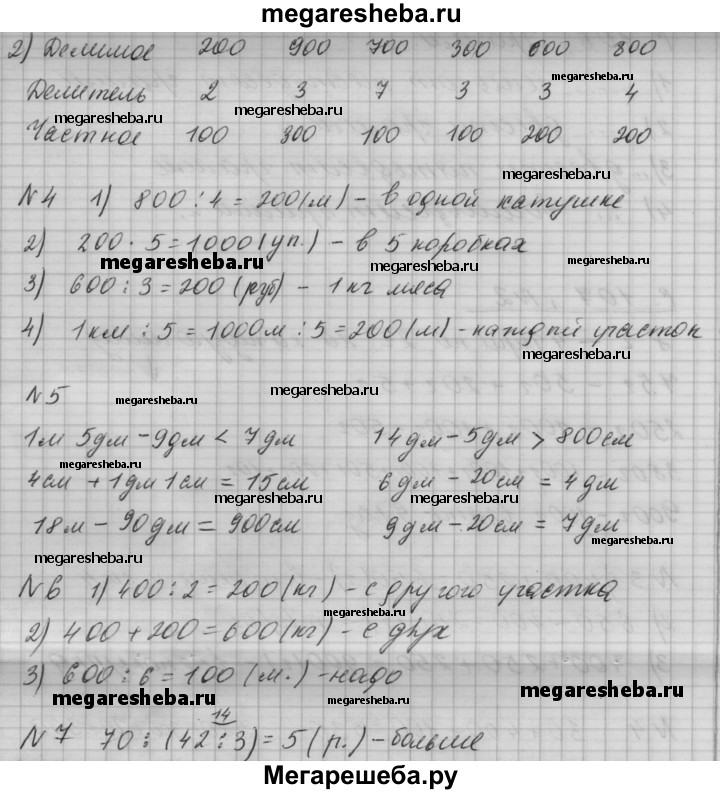 megaresheba.ru
2) Делимое 200 900 700 300 600 800
megaresheba.ru
Делитель 2 3 7 3 3 4
megaresheba.ru megaresheba.ru
Частное 100 300 100 100 200 200
megaresheba.ru
N4 1) 800 : 4 = 200(м) - в одной катушке
2) 200 · 5 = 1000(уп.) - в 5 коробках
megaresheba.ru megaresheba.ru megaresheba.ru
3) 600 : 3 = 200 (руб) - 1 кг мяса
4) 1км : 5 = 1000м : 5 = 200(м) - каждый участок
megaresheba.ru
N5 megaresheba.ru megaresheba.ru
1м 5дм - 9дм < 7дм 14дм - 5дм > 800см
megaresheba.ru
4см + 1дм 1см = 15см 6дм - 20см = 4дм
megaresheba.ru megaresheba.ru
18м - 90дм = 900см 9дм - 20см = 7дм
megaresheba.ru megaresheba.ru
N6 1) 400 : 2 = 200(кг) - с другого участка
megaresheba.ru
2) 400 + 200 = 600(кг) - с двух
3) 600 : 6 = 100 (м.) - надо
megaresheba.ru megaresheba.ru megaresheba.ru
14
N7 70 : (42 : 3) = 5(р.) - больше
Мегарешеба.ру